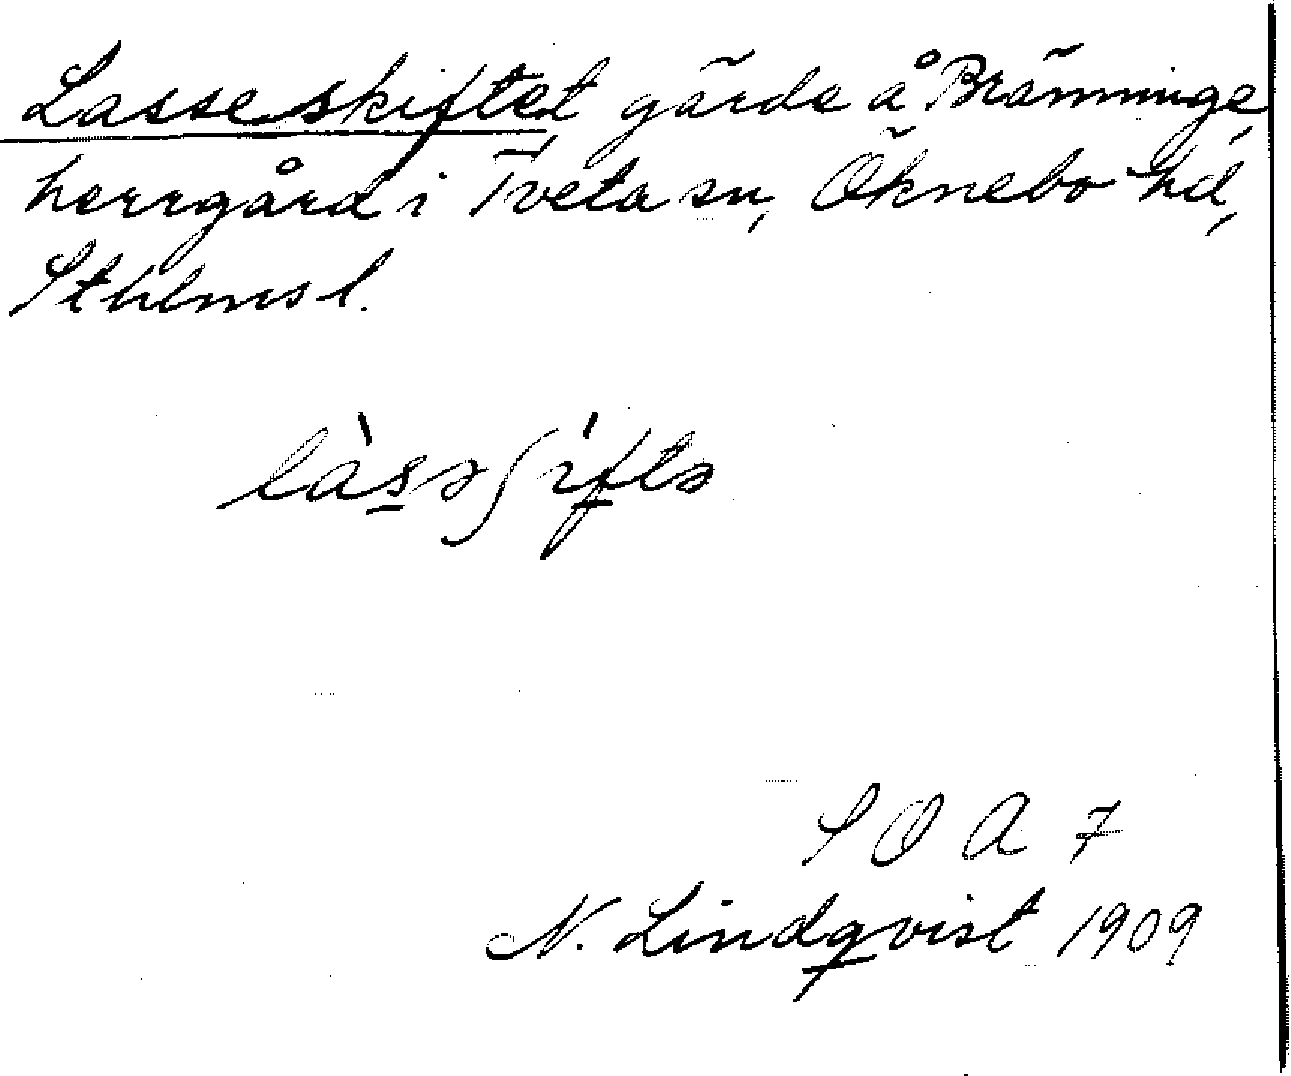 Lasseskiftet gärde å Bränninge
herrgård i Tveta sn, Öknebo hd,
Sthlms l.
làsəʃıftə
S O A 7
N. Lindqvist 1909